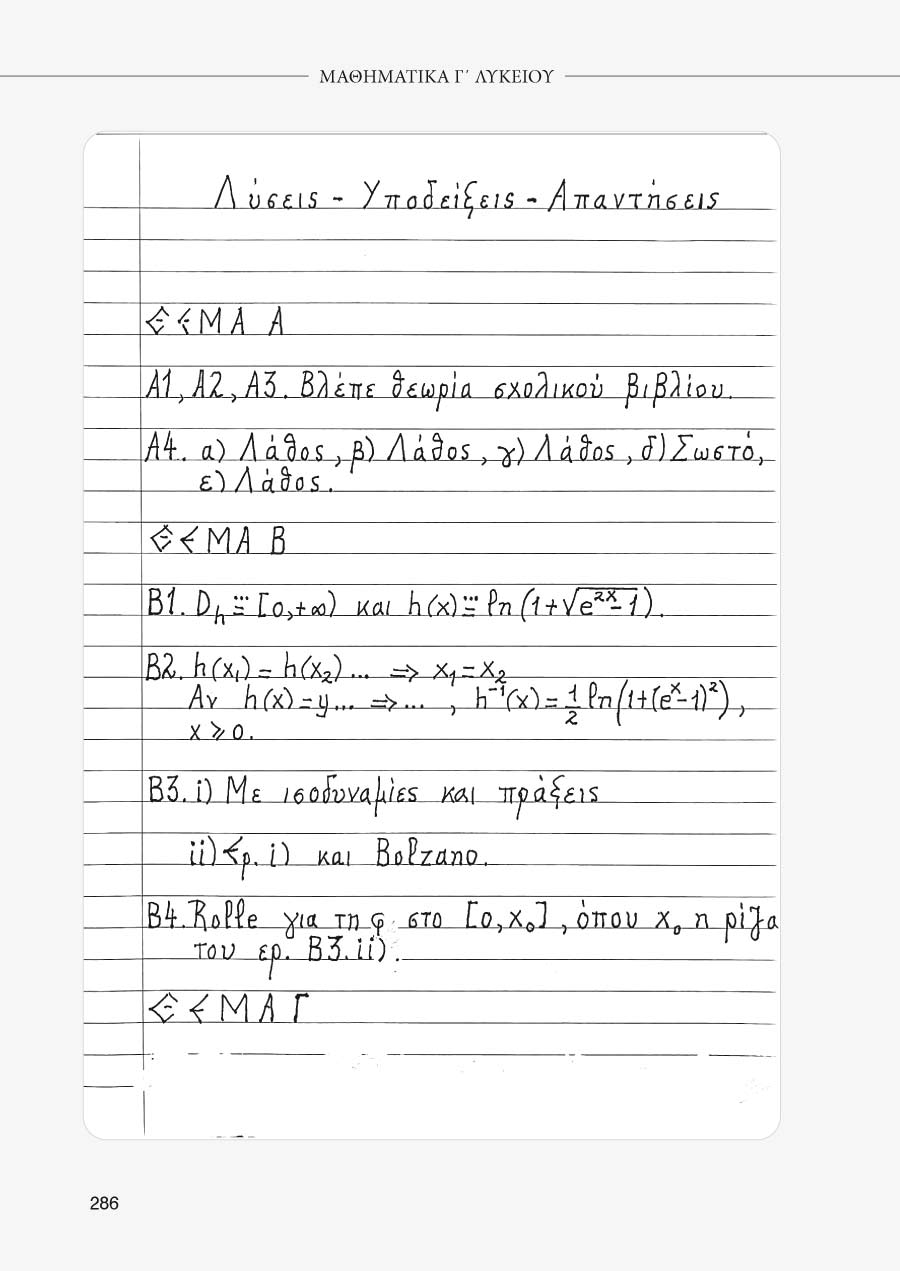 ΜΑΘΗΜΑΤΙΚΑ Γ΄ ΛΥΚΕΙΟΥ
Λύσεις - Υποδείξεις - Απαντήσεις
ΘΕΜΑ Α
Α1, Α2, Α3. Βλέπε θεωρία σχολικού βιβλίου.
Α4. α) Λάθος, β) Λάθος, γ) Λάθος, δ) Σωστό,
ε) Λάθος.
ΘΕΜΑ Β
Β1. D_h ≝ [0,+∞) και h(x) ≝ ln(1+√(e^(2x)-1)).
Β2. h(x₁) = h(x₂) ... ⇒ x₁ = x₂
Αν h(x) = y ... ⇒ ... , h⁻¹(x) = 1/2 ln(1+(eˣ-1)²),
x ⩾ 0.
Β3. i) Με ισοδυναμίες και πράξεις
ii) Ερ. i) και Bolzano.
Β4. Rolle για τη φ στο [0, x₀], όπου x₀ η ρίζα
του ερ. Β3. ii).
ΘΕΜΑ Γ
286